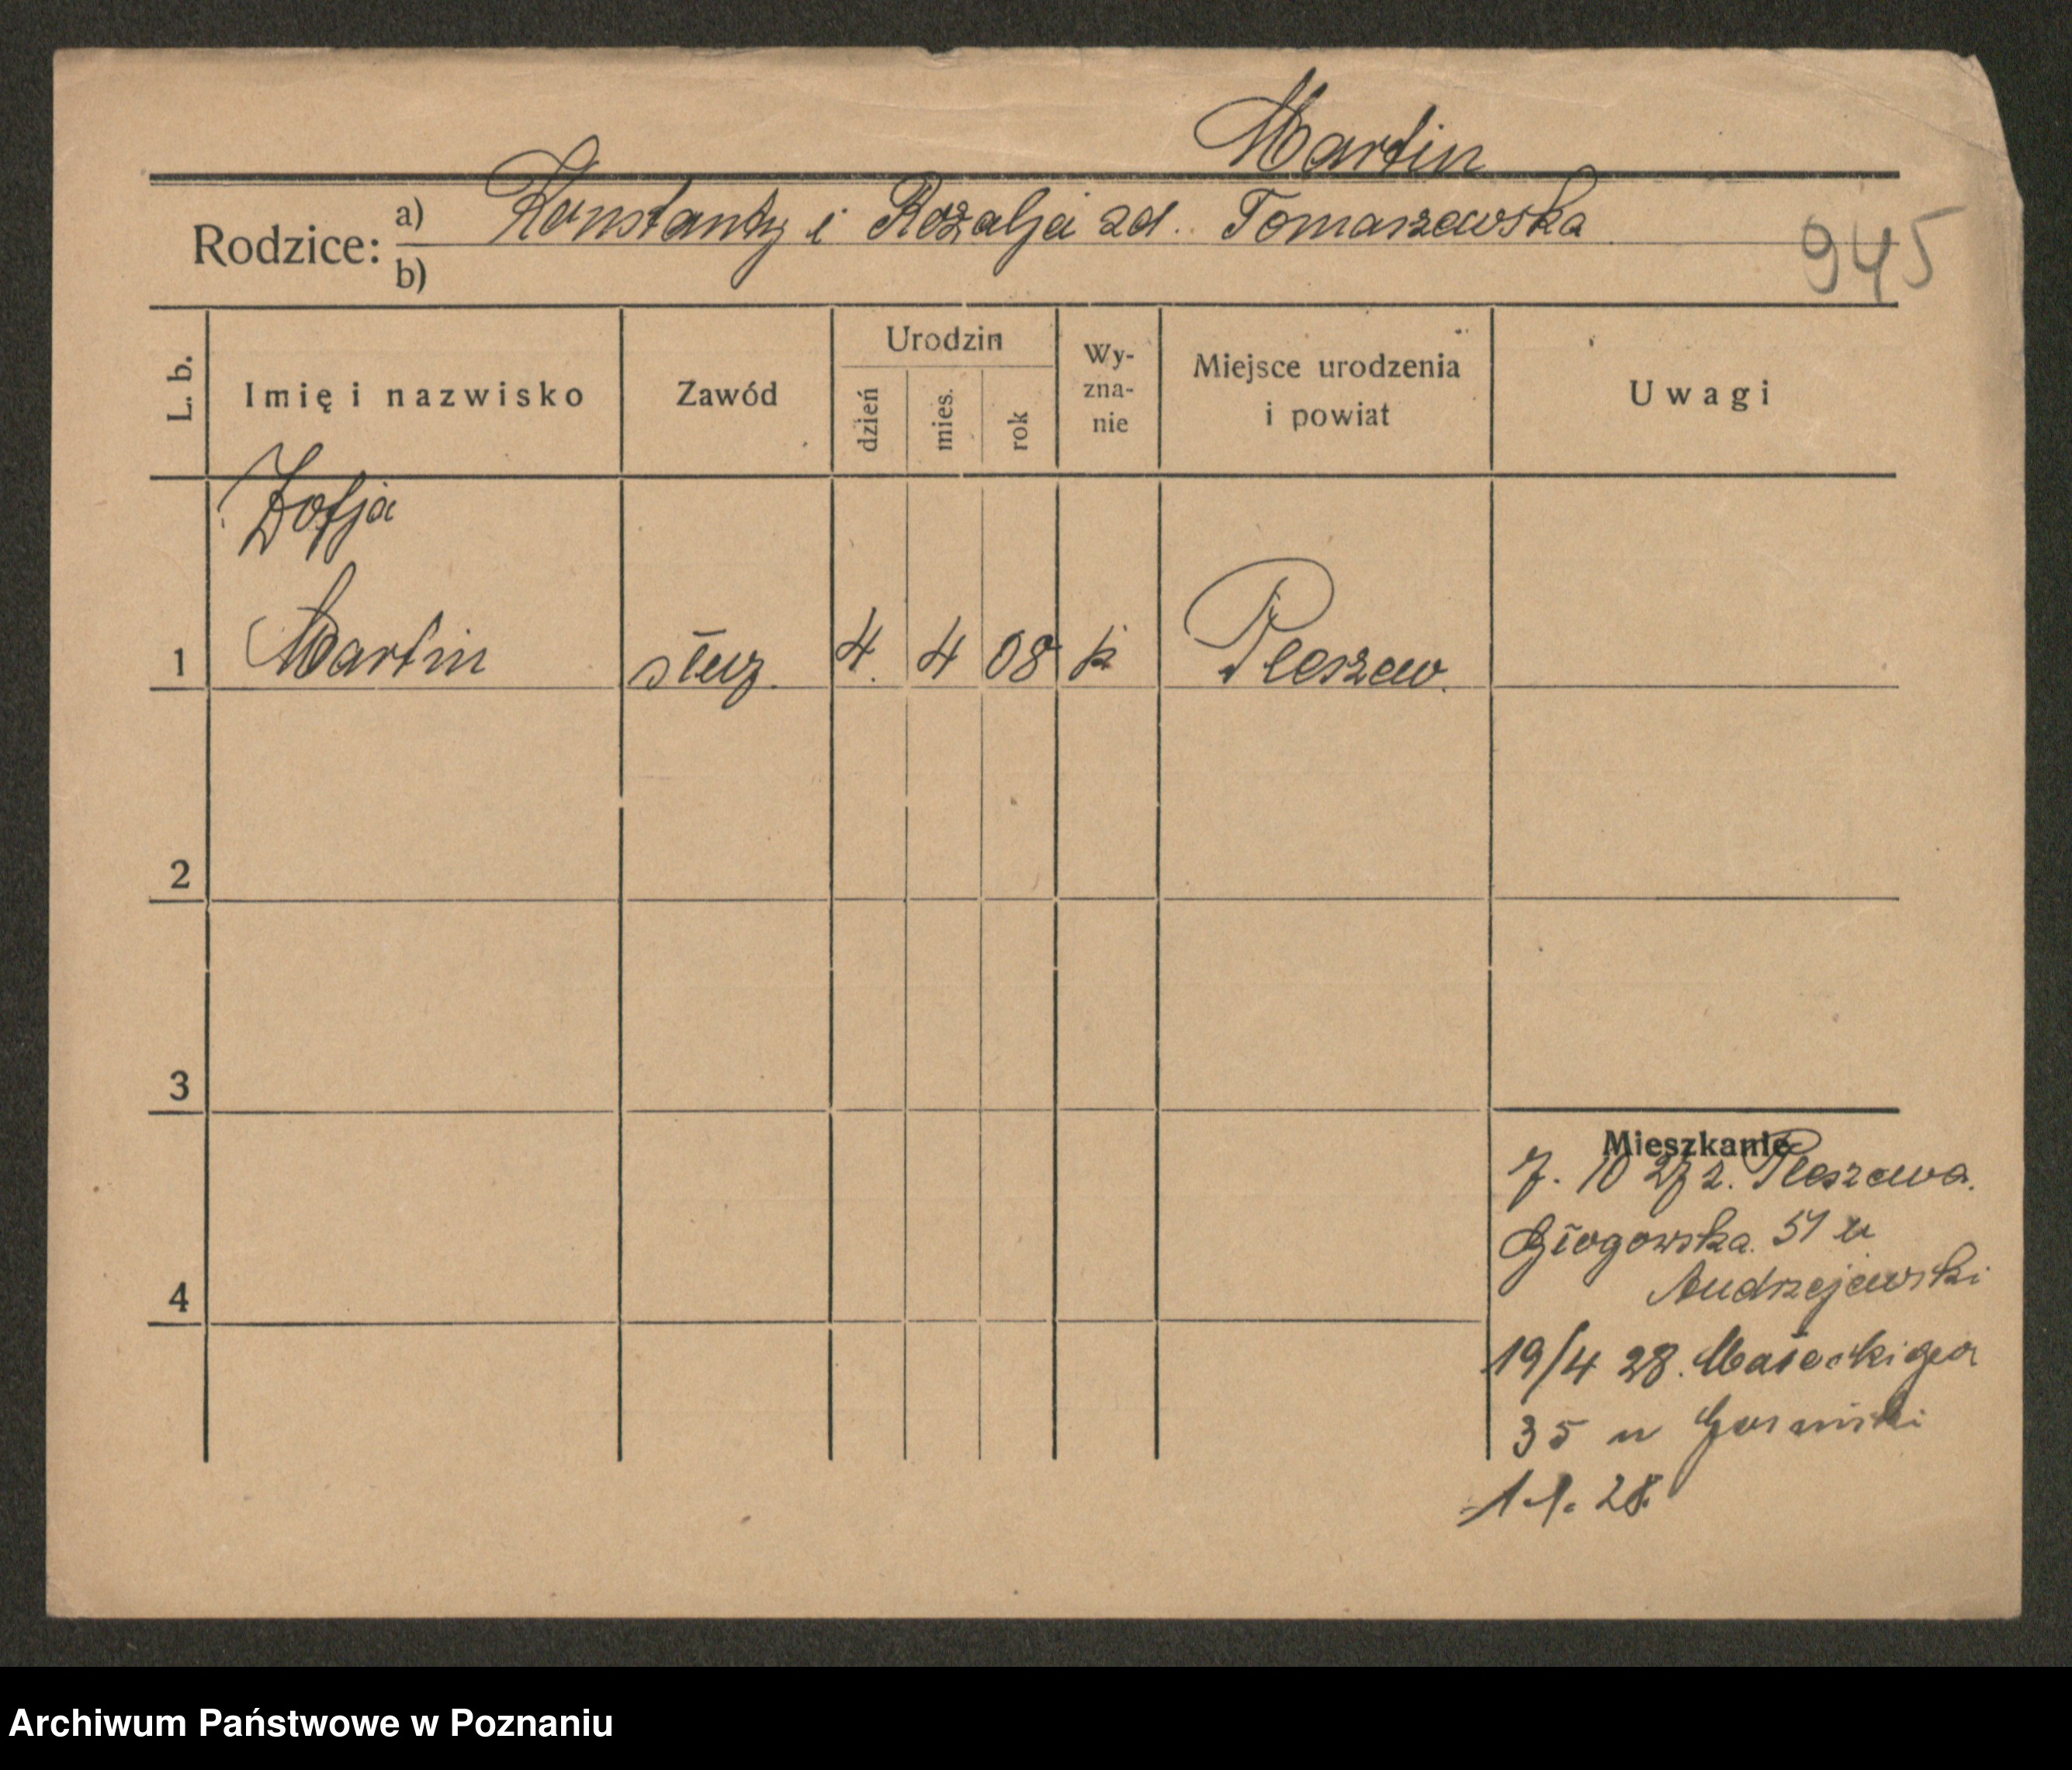 Martin
Rodzice: a) Konstanty i Rozalja zd. Tomaszewska
b)
945
L. b.
Imię i nazwisko
Zawód
Urodzin
dzień
mies.
rok
Wy-
zna-
nie
Miejsce urodzenia
i powiat
Uwagi
Zofja
1 Martin służ. 4. 4 08 k Pleszew.
2
3
4
Mieszkanie
7. 10 27 z. Pleszewa.
Głogowska 51 u
Andrzejewski
19/4 28. Małeckiego
35 u
1 1. 28.
Archiwum Państwowe w Poznaniu